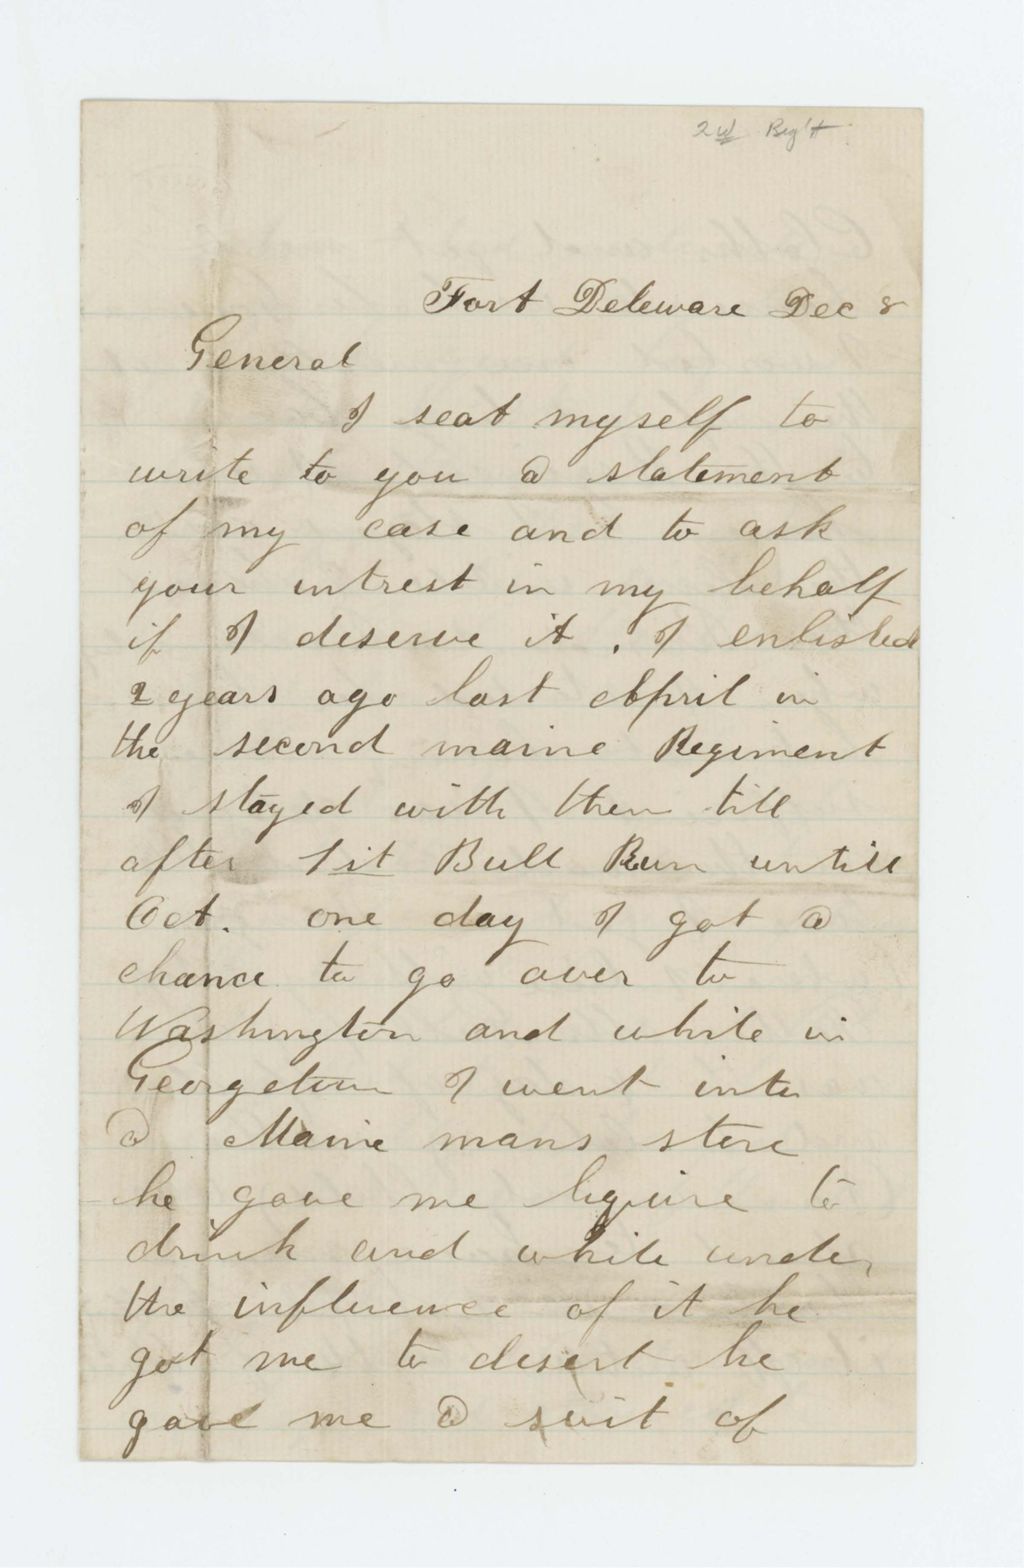 2d Reg't
Fort Deleware Dec 8
General
I seat myself to
write to you a statement
of my case and to ask
your intrest in my behalf
if I deserve it. I enlisted
2 years ago last April in
the second maine Regiment
I stayed with them till
after 1st Bull Run untill
Oct. one day I got a
chance to go over to
Washington and while in
Georgetown I went into
a Maine mans store
he gave me liquire to
drink and while under
the influence of it he
got me to desert he
gave me a suit of